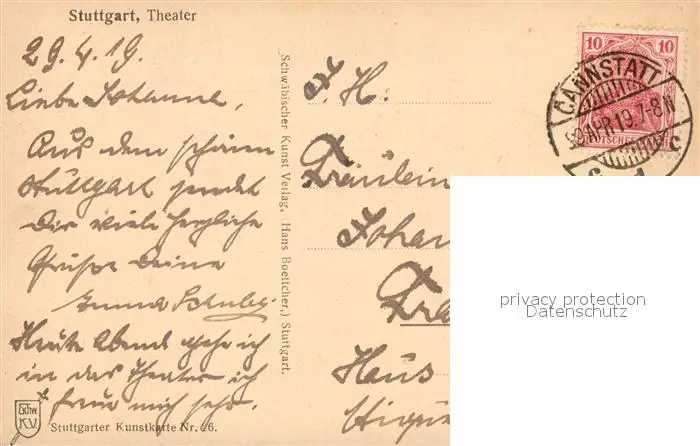 Stuttgart, Theater
29.4.19.
Liebe Johanna,
Aus dem schönen
Stuttgart sendet
Dir viele herzliche
Grüße Deine
Emma
Heute Abend gehe ich
in das Theater ich
freue mich sehr.
Schw.
K.V.
Stuttgarter Kunstkarte Nr. 26.
Schwäbischer Kunst Verlag, Hans Boettcher,) Stuttgart.
10 10
DEUTSCHES REICH
CANNSTATT
APR 19. 7-8 N
c
H:
Fräulein
Johan
Haus
privacy protection
Datenschutz